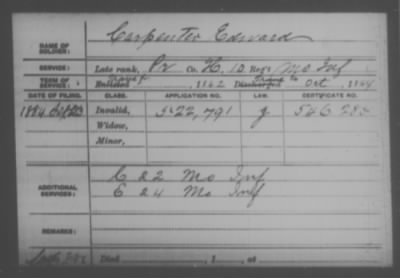 NAME OF SOLDIER: Carpenter Edward
SERVICE: Late rank, Pr Co. H, 10 Reg't Mo Inf
TERM OF SERVICE: Enlisted , 1862 Discharged Oct , 1864
DATE OF FILING. CLASS. APPLICATION NO. LAW. CERTIFICATE NO.
1884 Invalid, 522,791 g 546 285
Widow,
Minor,
C 22 Mo Inf
ADDITIONAL SERVICES: E 24 Mo Inf
REMARKS:
Died , 1 , at